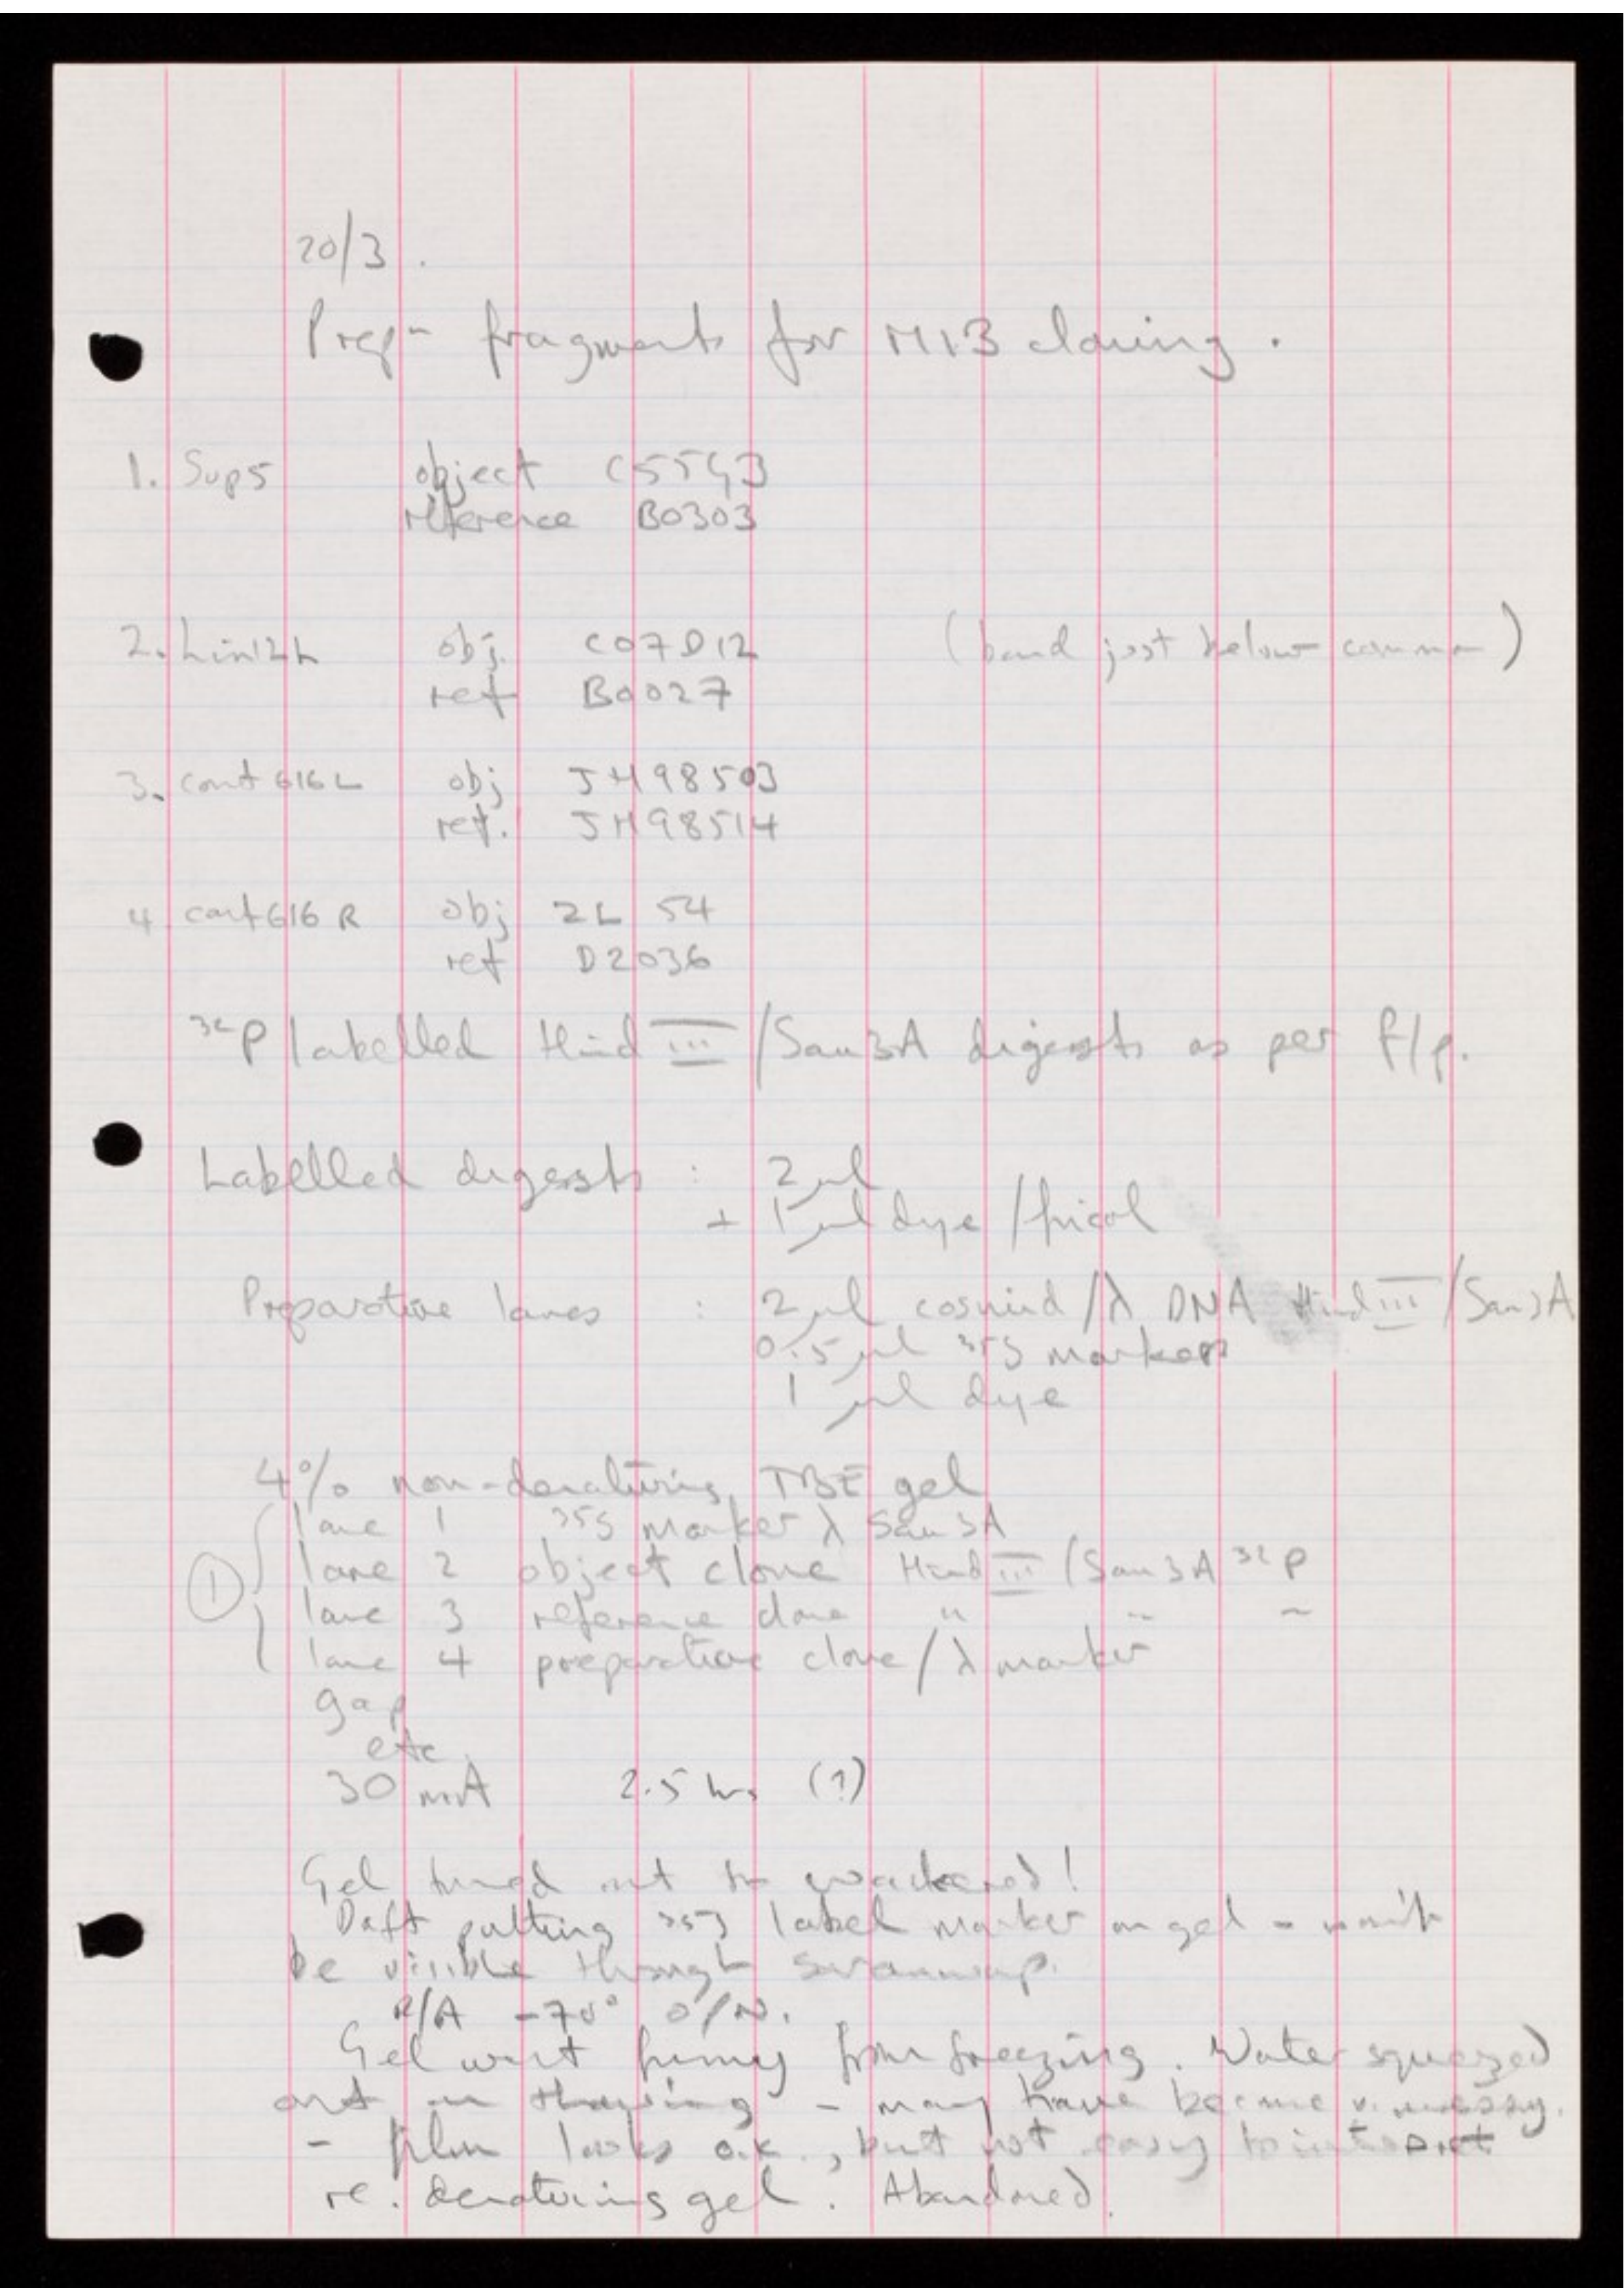 20/3.
Prepn fragments for M13 cloning.
1. Sup5 object C55G3
reference B0303
2. Lin12L obj. C07D12 (band just below common)
ref B0027
3. cont 616 L obj JM98503
ref. JM98514
4 cont 616 R obj 2L 54
ref D2036
32P labelled Hind III / Sau3A digests as per f/p.
Labelled digests : 2 µl
+ 1 µl dye / ficol
Preparative lanes : 2 µl cosmid / λ DNA Hind III / Sau3A
0.5 µl 35S marker
1 µl dye
4% non-denaturing TBE gel
lane 1 35S Marker λ Sau3A
① lane 2 object clone Hind III / Sau3A 32P
lane 3 reference clone " " "
lane 4 preparative clone / λ marker
gap
etc
30 mA 2.5 hrs (?)
Gel turned out to
Daft putting 35S label marker on gel - won't
be visible through saranwrap.
A/A -70° O/N.
Gel went funny from freezing. Water squeezed
out on thawing - may have become v. messy.
- film looks o.k., but not easy to interpret
re. denaturing gel. Abandoned.